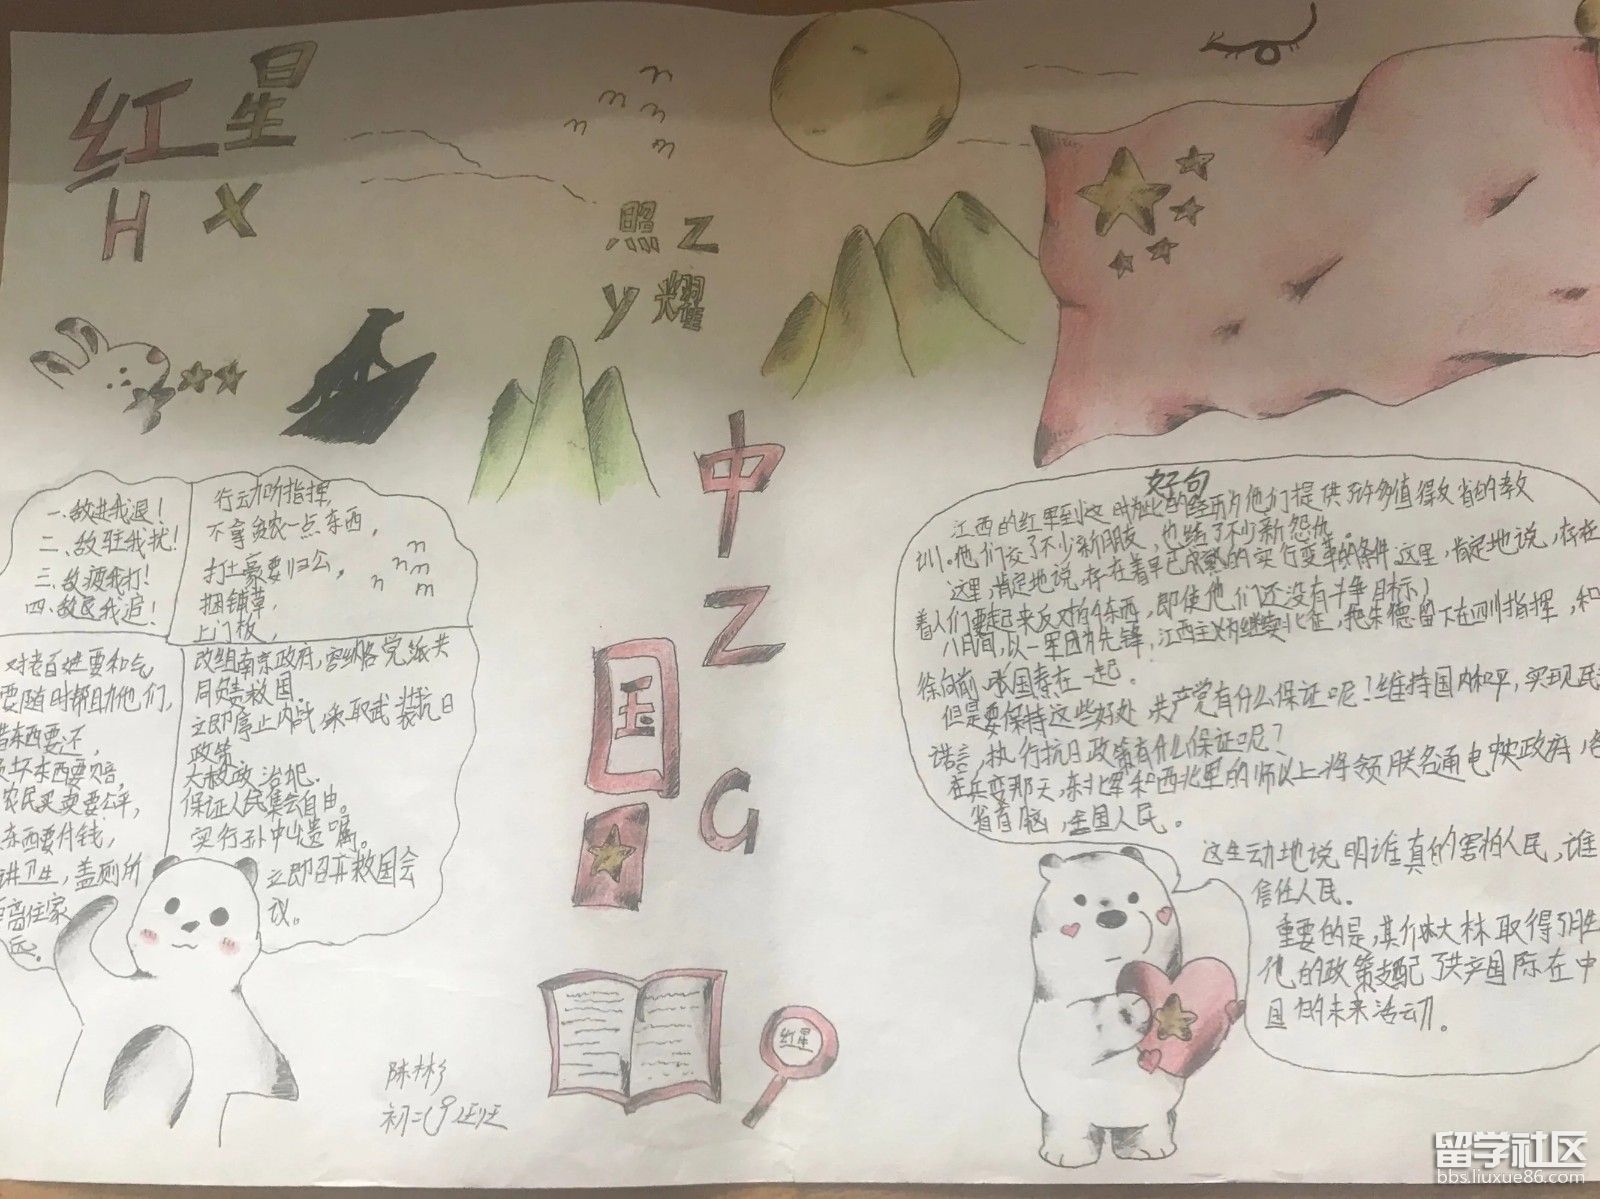 红星
H X
照 Z
y 耀
中
Z
国
G
一、敌进我退!
二、敌驻我扰!
三、敌疲我打!
四、敌退我追!
行动听指挥,
不拿贫农一点东西,
打土豪要归公,
捆铺草,
上门板,
对老百姓要和气
要随时帮助他们,
借东西要还,
坏东西要赔,
农民买卖要公平,
东西要付钱,
讲卫生,盖厕所
离住家
远。
改组南京政府,容纳各党派共
同负责救国。
立即停止内战,采取武装抗日
政策
大赦政治犯.
保证人民集会自由。
实行孙中山遗嘱。
立即召开救国会
议。
好句
江西的红军到这时为止的经历为他们提供了许多值得反省的教
训。他们交了不少新朋友,也结了不少新怨仇。
这里,肯定地说,存在着早已成熟的实行变革的条件.这里,肯定地说,存在
着人们要起来反对的东西,即使他们还没有斗争目标!
八月间,以一军团为先锋,江西主力继续北征,把朱德留下在四川指挥,和
徐向前、张国焘在一起.
但是要保持这些好处,共产党有什么保证呢!维持国内和平,实现民主
诺言,执行抗日政策有什么保证呢?
在兵变那天,东北军和西北军的师以上将领联名通电中央政府,各
省首脑,全国人民。
这生动地说明谁真的害怕人民,谁
信任人民.
重要的是,其尔林大林取得了胜
他的政策支配了共产国际在中
国的未来活动。
红星
陈彬
初二(9)班
留学社区
bbs.liuxue86.com